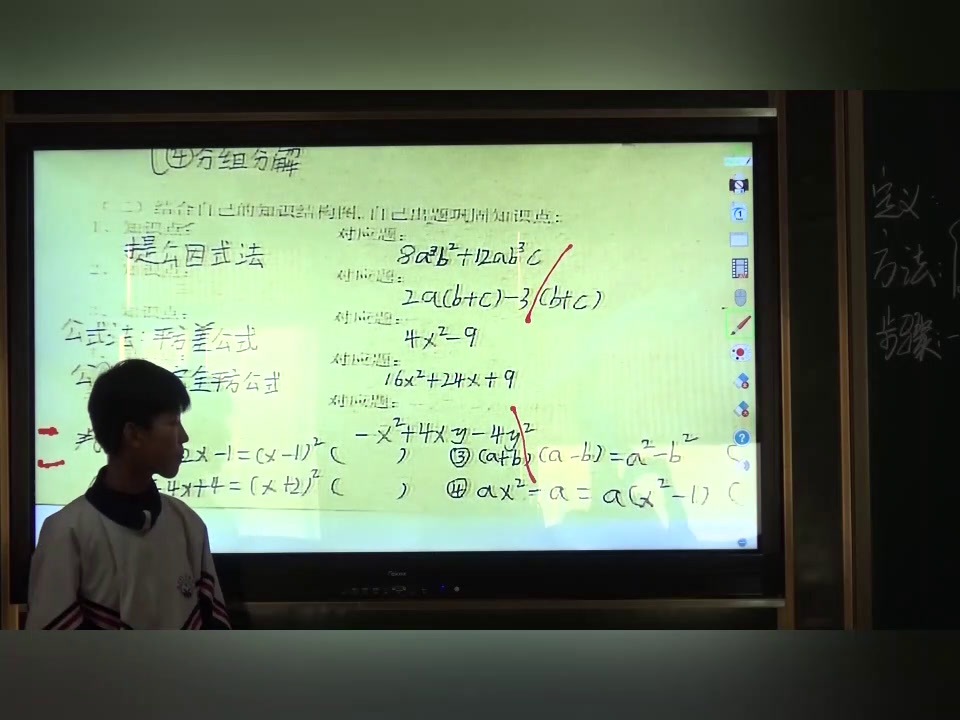 ④分组分解
(二)结合自己的知识结构图,自己出题巩固知识点:
1、知识点:
对应题:
提公因式法
8a³b²+12ab³c
对应题:
2a(b+c)-3(b+c)
知识点:
对应题:
公式法:平方差公式
4x²-9
对应题:
完全平方公式
16x²+24x+9
对应题:
-x²+4xy-4y²
2x-1=(x-1)² ( ) ③(a+b)(a-b)=a²-b² (
4x+4=(x+2)² ( ) ④ax²-a=a(x²-1) (
定义:
方法:
步骤: